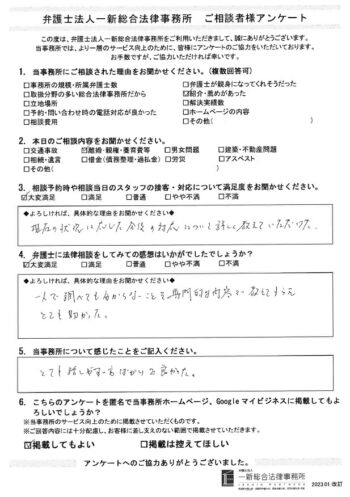 弁護士法人一新総合法律事務所　ご相談者様アンケート
この度は、弁護士法人一新総合法律事務所をご利用いただきまして、誠にありがとうございます。
当事務所では、より一層のサービス向上のために、皆様にアンケートのご協力をいただいております。
お手数ですが、ご協力いただければ幸いです。
1．当事務所にご相談された理由をお聞かせください。（複数回答可）
□事務所の規模・所属弁護士数　□弁護士が親身になってくれそうだった
□取扱分野の多い総合法律事務所だから　☑紹介・薦めがあった
□立地場所　□解決実績数
□予約・問い合わせ時の電話対応が良かった　□ホームページの内容
□相談費用　□その他（　）
2．本日のご相談内容をお聞かせください。
□交通事故　☑離婚・親権・養育費等　□男女問題　□建築・不動産問題
□相続・遺言　□借金（債務整理・過払金）　□労災　□アスベスト
□その他（　）
3．相談予約時や相談当日のスタッフの接客・対応について満足度をお聞かせください。
☑大変満足　□満足　□普通　□やや不満　□不満
◆よろしければ、具体的な理由をお聞かせください◆
現在の状況に対した今後の対応について詳しく教えていただけた。
4．弁護士に法律相談をしてみての感想はいかがでしたでしょうか？
☑大変満足　□満足　□普通　□やや不満　□不満
◆よろしければ、具体的な理由をお聞かせください◆
一人で調べても分からないことを専門的な内容で教えてもらえ
とても助かった。
5．当事務所について感じたことをご記入ください。
とても話しやすい方ばかりで良かった。
6．こちらのアンケートを匿名で当事務所ホームページ、Googleマイビジネスに掲載してもよ
ろしいでしょうか？
※当事務所のサービス向上のために掲載させていただくものです。
※ご回答内容には十分配慮し、お客様に差し支えのない範囲で掲載させていただきます。
☑掲載してもよい　□掲載は控えてほしい
アンケートへのご協力ありがとうございました。
弁護士法人
一新総合法律事務所
2023.01 改訂